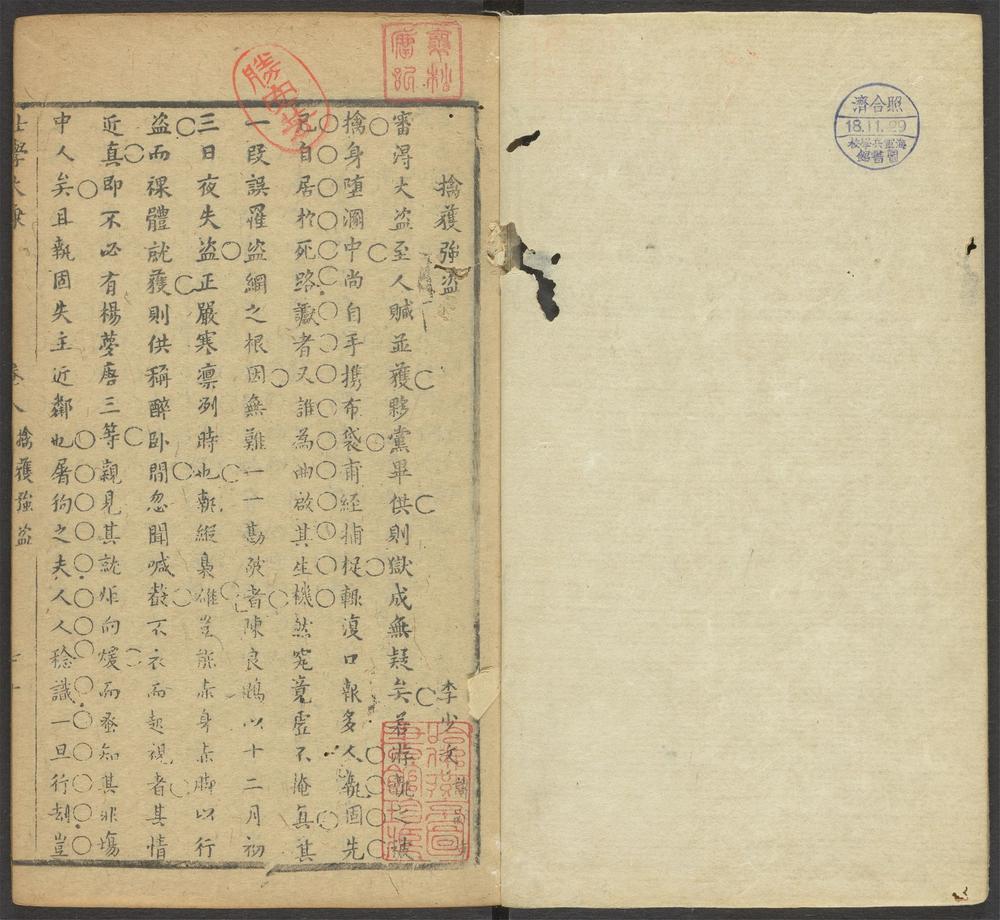 擒獲強盜
李少文
審得大盜至人贓並獲夥黨畢供則獄成無疑矣若游
擒身墮溷中尚自手携布袋甫經捕捉輒復口報多人執固先
已自居於死路讞者又誰為曲啟其生機然究竟虛不掩真其
一段誤罹盜綱之根因無難一一勘破者陳良鵾以十二月初
三日夜失盜正嚴寒凛冽時也執縱梟雄豈能赤身赤脚以行
盜而裸體就獲則供稱醉卧間忽聞喊救不衣而起視者其情
近真即不必有楊夢唐三等親見其就炬向煖而蚤知其非塲
中人矣且執固失主近鄰也屠狗之夫人人稔識一旦行刼豈
卷八 擒獲強盜
照合濟
18.11.29
海軍兵學校
圖書館